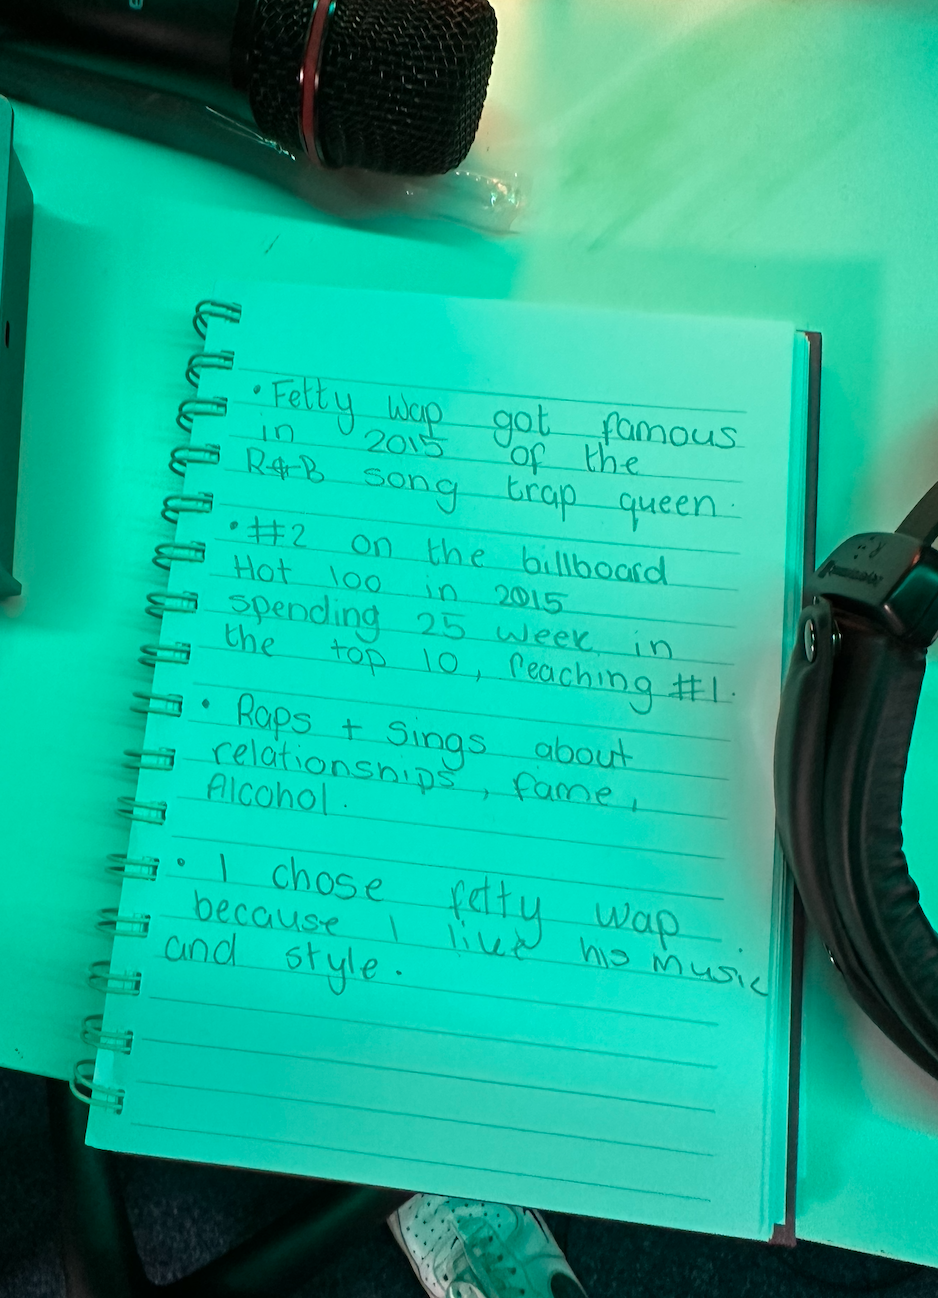 • Fetty Wap got famous
in 2015 of the
R&B song trap queen.
• #2 on the billboard
Hot 100 in 2015
spending 25 week in
the top 10, reaching #1.
• Raps + Sings about
relationships, fame,
Alcohol.
• I chose fetty wap
because I like his music
and style.